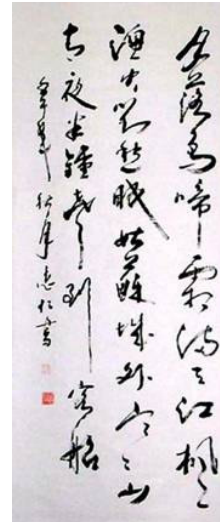 月落烏啼霜滿天江楓
漁火對愁眠姑蘇城外寒山
寺夜半鐘聲到客船
秋月
書